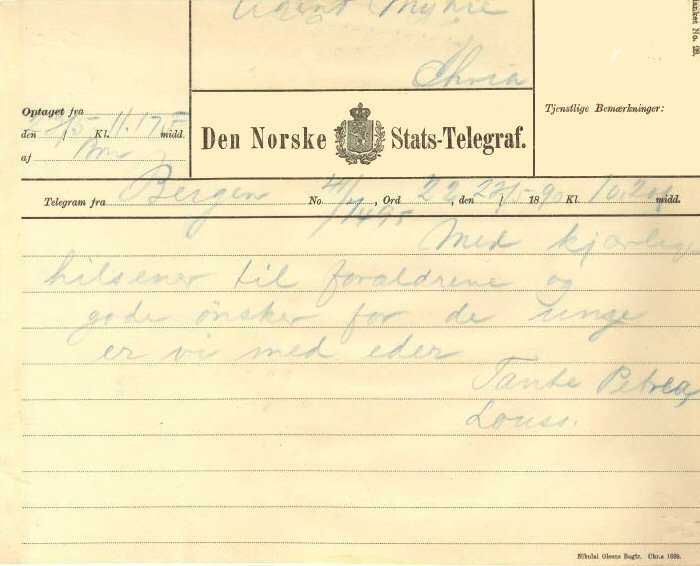 Agent Mohre
Chria
Blanket No. 22.
Optaget fra
den 27/5 Kl. 11.17 F midd.
af Bm
Den Norske Stats-Telegraf.
Tjenstlige Bemærkninger:
Telegram fra Bergen No. /7495, Ord 22, den 27/5 1890 Kl. 10.20 f midd.
Med kjærlige
hilsener til forældrene og
gode ønsker for de unge
er vi med eder
Tante Petrea,
Louss.
Nikolai Olsens Bogtr. Chr.a 1889.